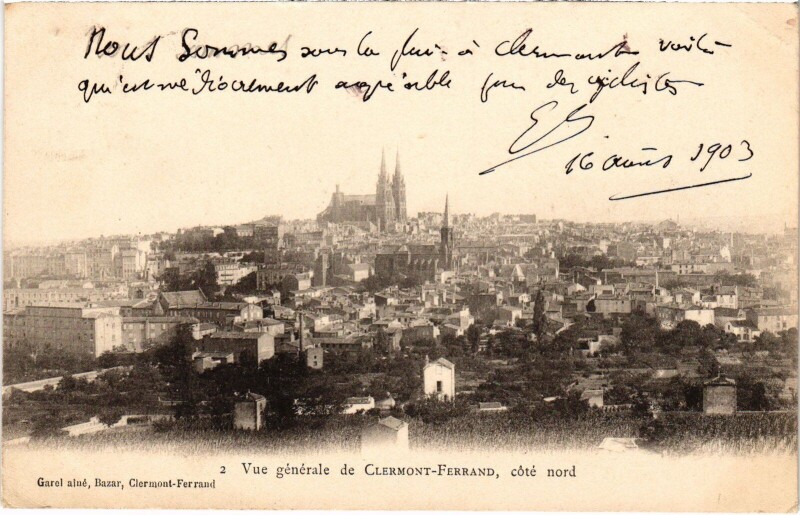 Nous Sommes sous la pluie à Clermont voilà
qui est médiocrement agréable pour des cyclistes
16 août 1903
2 Vue générale de CLERMONT-FERRAND, côté nord
Garel aîné, Bazar, Clermont-Ferrand